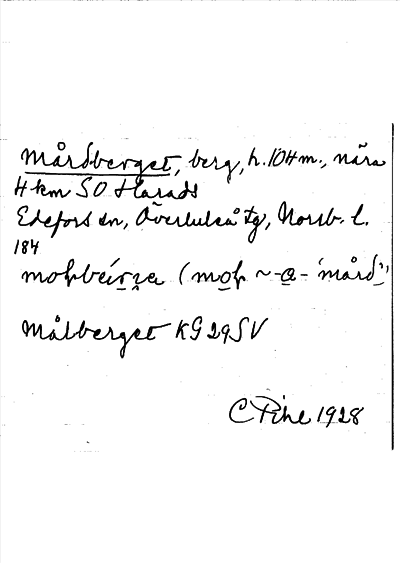 Mårdberget, berg, h. 104 m., nära
4 km SO Harads
Edefors sn, Överluleå tg, Norrb. l.
184
(~-a- 'mård')
Målberget KG 29 SV
C Pihl 1928